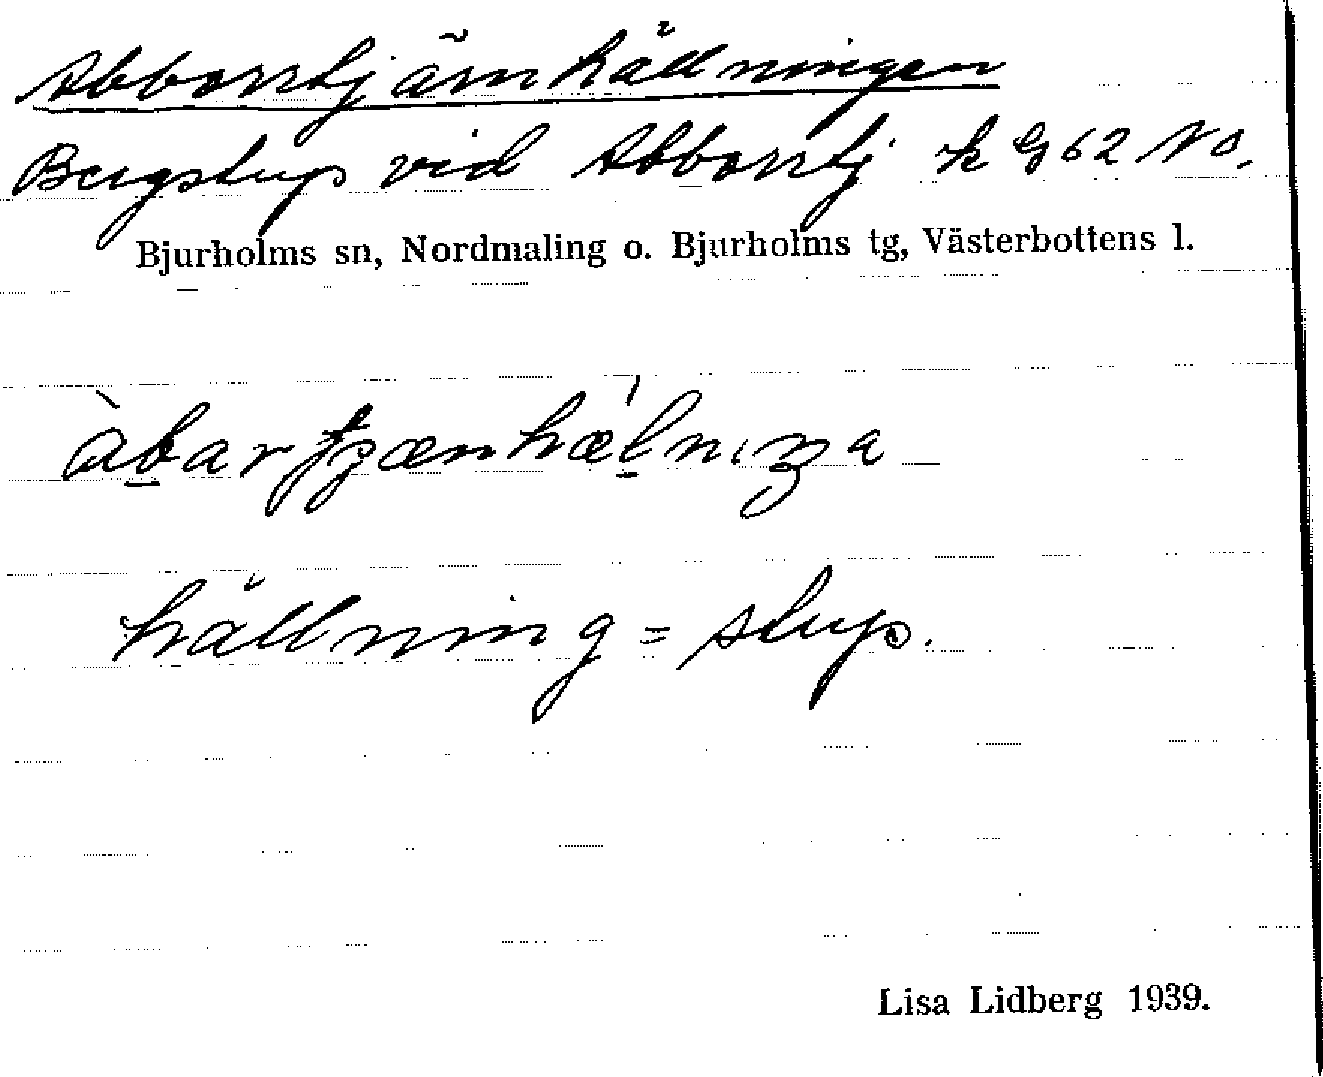 Abborrtjärnhällningen
Bergstup vid Abborrtj k G 62 NO.
Bjurholms sn, Nordmaling o. Bjurholms tg, Västerbottens l.
hällning = stup.
Lisa Lidberg 1939.